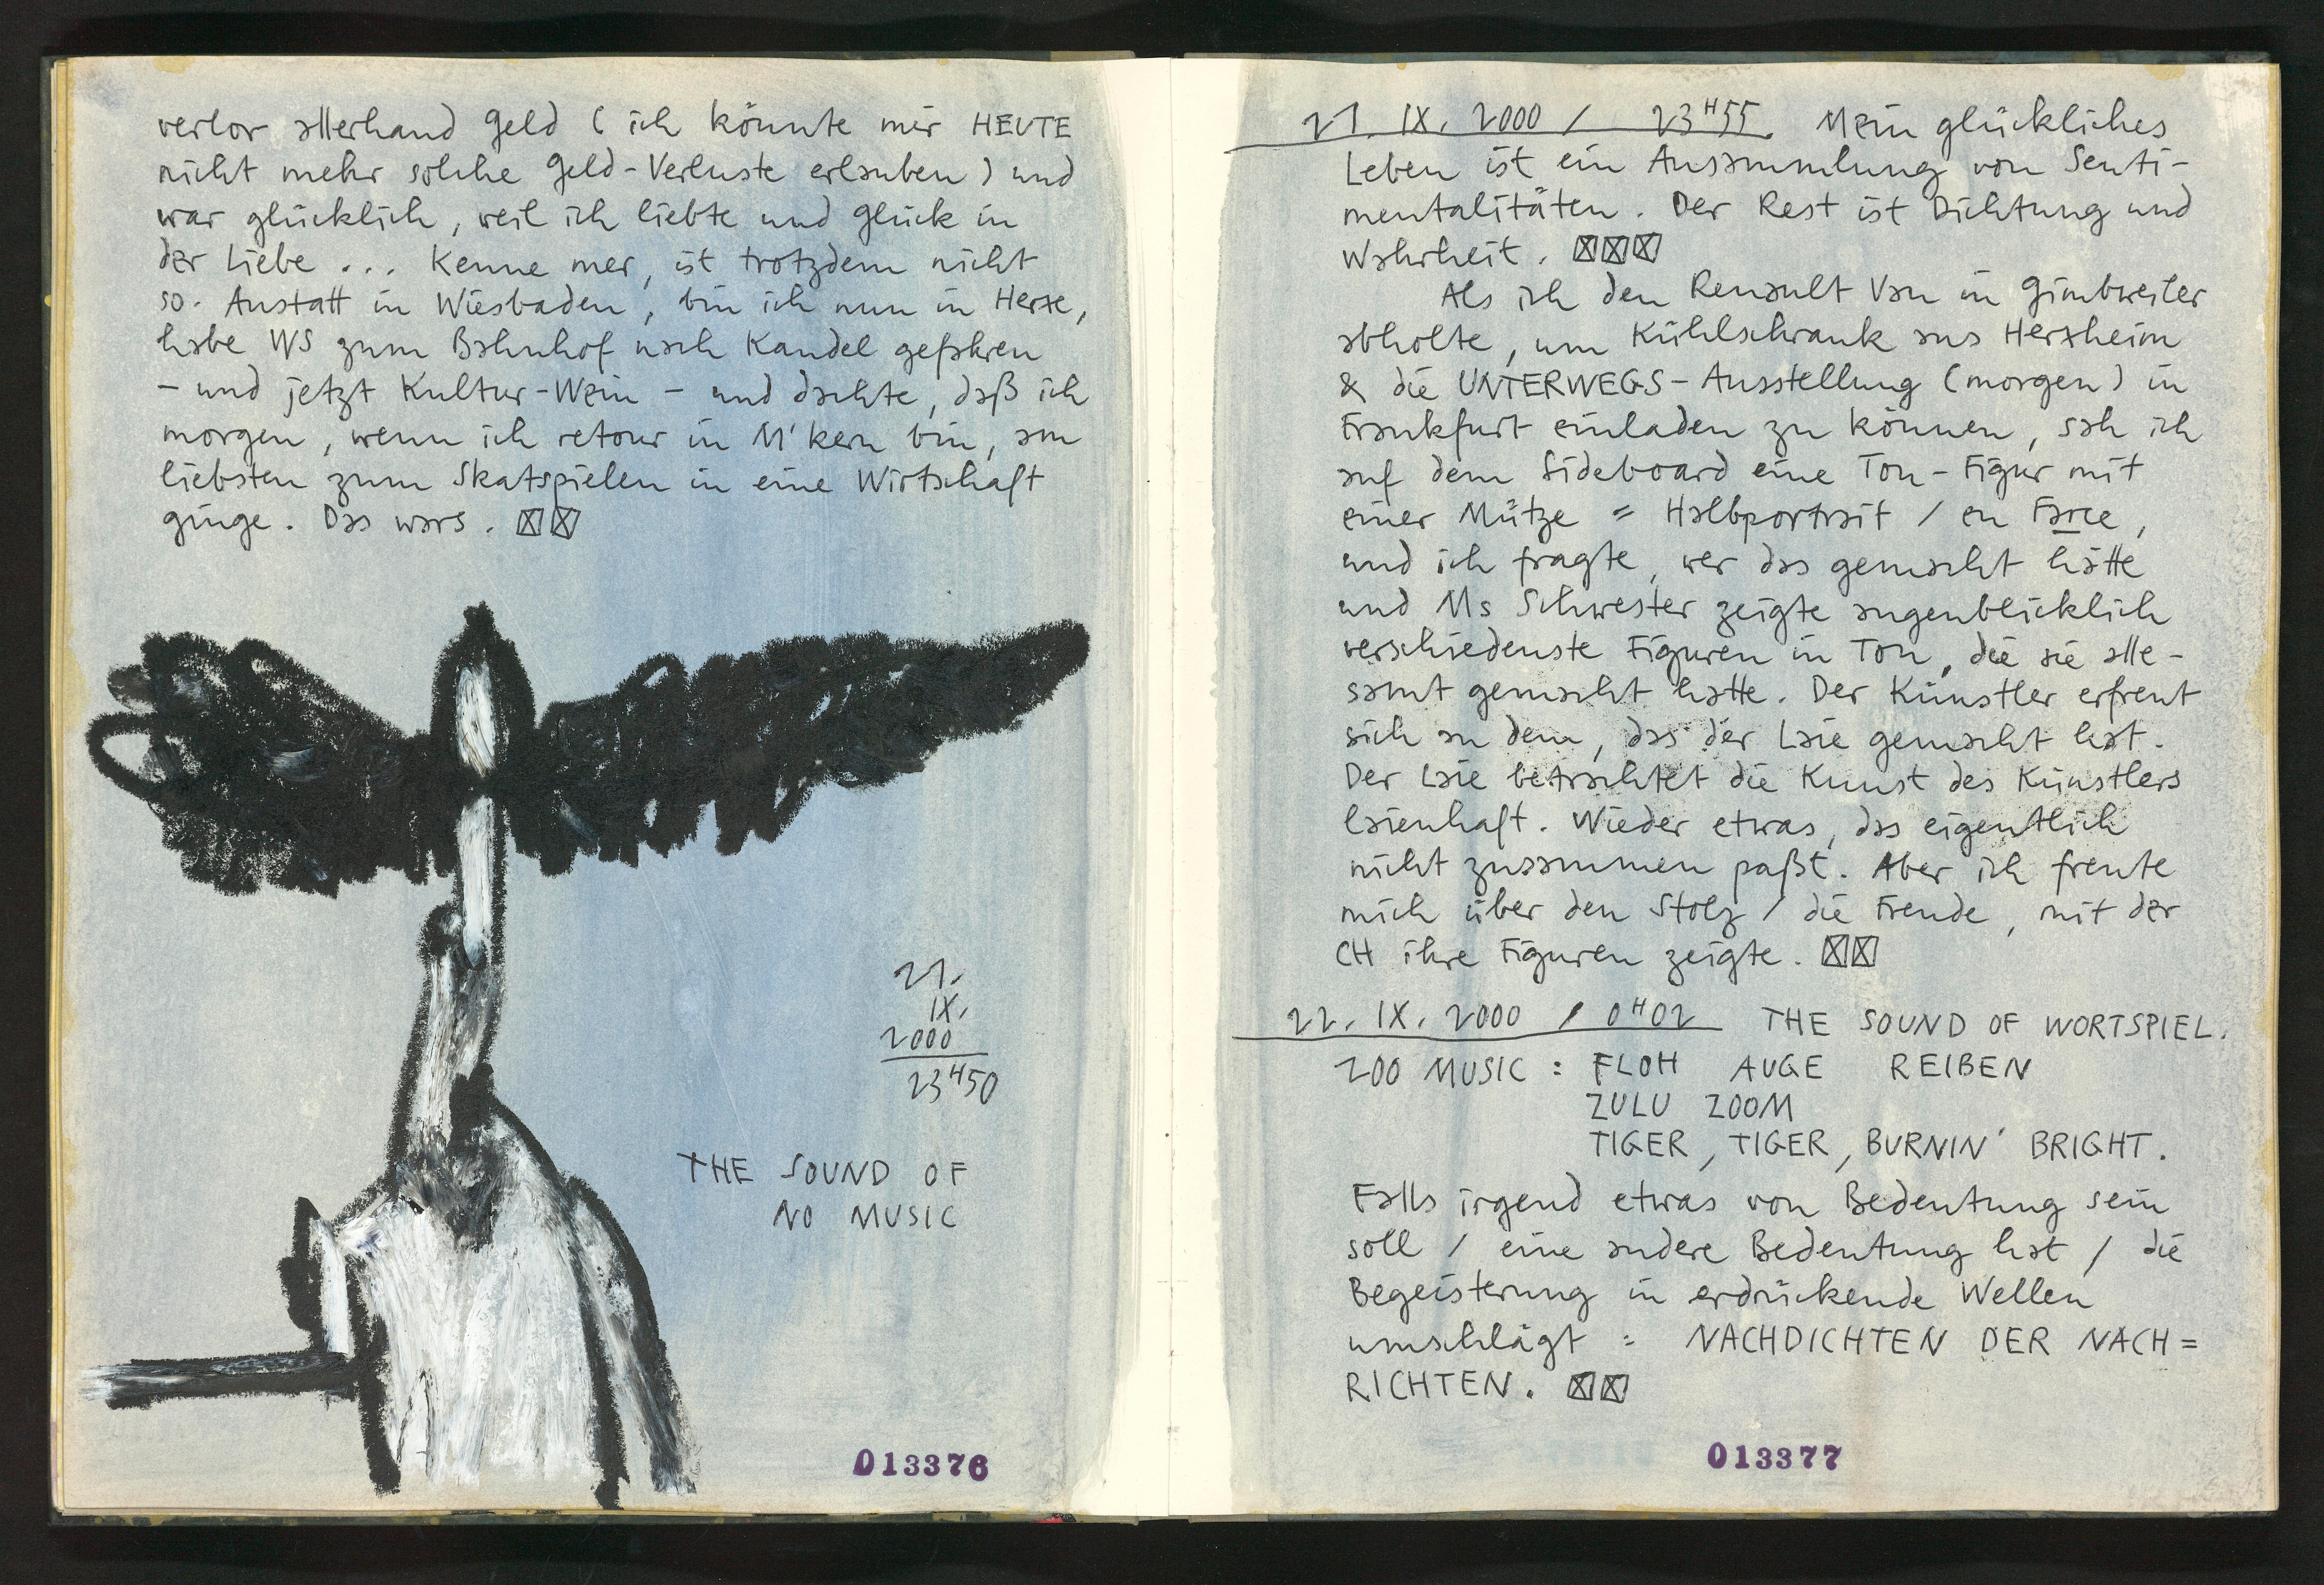 verlor allerhand Geld ( ich könnte mir HEUTE
nicht mehr solche Geld-Verluste erlauben ) und
war glücklich, weil ich liebte und Glück in
der Liebe ... Kenne mer, ist trotzdem nicht
so. Anstatt in Wiesbaden, bin ich nun in Herxe,
habe WS zum Bahnhof nach Kandel gefahren
– und jetzt Kultur-Wein – und dachte, daß ich
morgen, wenn ich retour in M'kern bin, am
liebsten zum Skatspielen in eine Wirtschaft
ginge. Das wars.
21.
IX.
2000
23H50
THE SOUND OF
NO MUSIC
013376
21. IX. 2000 / 23H55. Mein glückliches
Leben ist ein Ansammlung von Senti-
mentalitäten. Der Rest ist Dichtung und
Wahrheit.
Als ich den Renault Van in Gimbweiler
abholte, um Kühlschrank aus Herxheim
& die UNTERWEGS-Ausstellung (morgen) in
Frankfurt einladen zu können, sah ich
auf dem Sideboard eine Ton-Figur mit
einer Mütze = Halbportrait / en Farce,
und ich fragte, wer das gemacht hätte
und Ms Schwester zeigte augenblicklich
verschiedenste Figuren in Ton, die sie alle-
samt gemacht hatte. Der Künstler erfreut
sich an dem, das der Laie gemacht hat.
Der Laie betrachtet die Kunst des Künstlers
laienhaft. Wieder etwas, das eigentlich
nicht zusammen paßt. Aber ich freute
mich über den Stolz / die Freude, mit der
CH ihre Figuren zeigte.
22. IX. 2000 / 0H02 THE SOUND OF WORTSPIEL.
ZOO MUSIC : FLOH AUGE REIBEN
ZULU ZOOM
TIGER, TIGER, BURNIN' BRIGHT.
Falls irgend etwas von Bedeutung sein
soll / eine andere Bedeutung hat / die
Begeisterung in erdrückende Wellen
umschlägt : NACHDICHTEN DER NACH=
RICHTEN.
013377